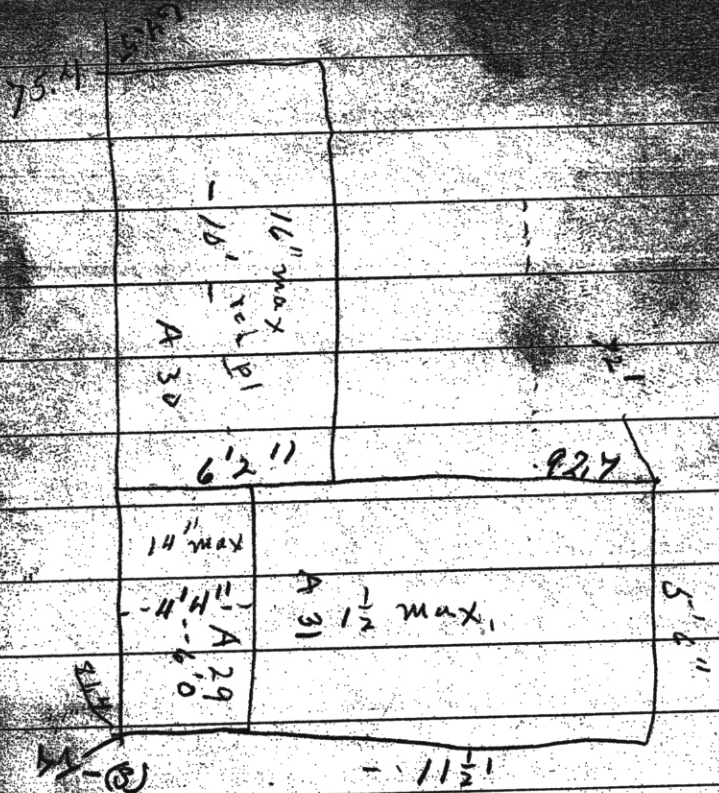 75.4
16" max
- 16' -
A 30
6'2"
72'
92.7
14" max
- 4'4" -
A 29
- 6'0
A 31
1 1/2 max.
5' 6"
- 11 1/2'